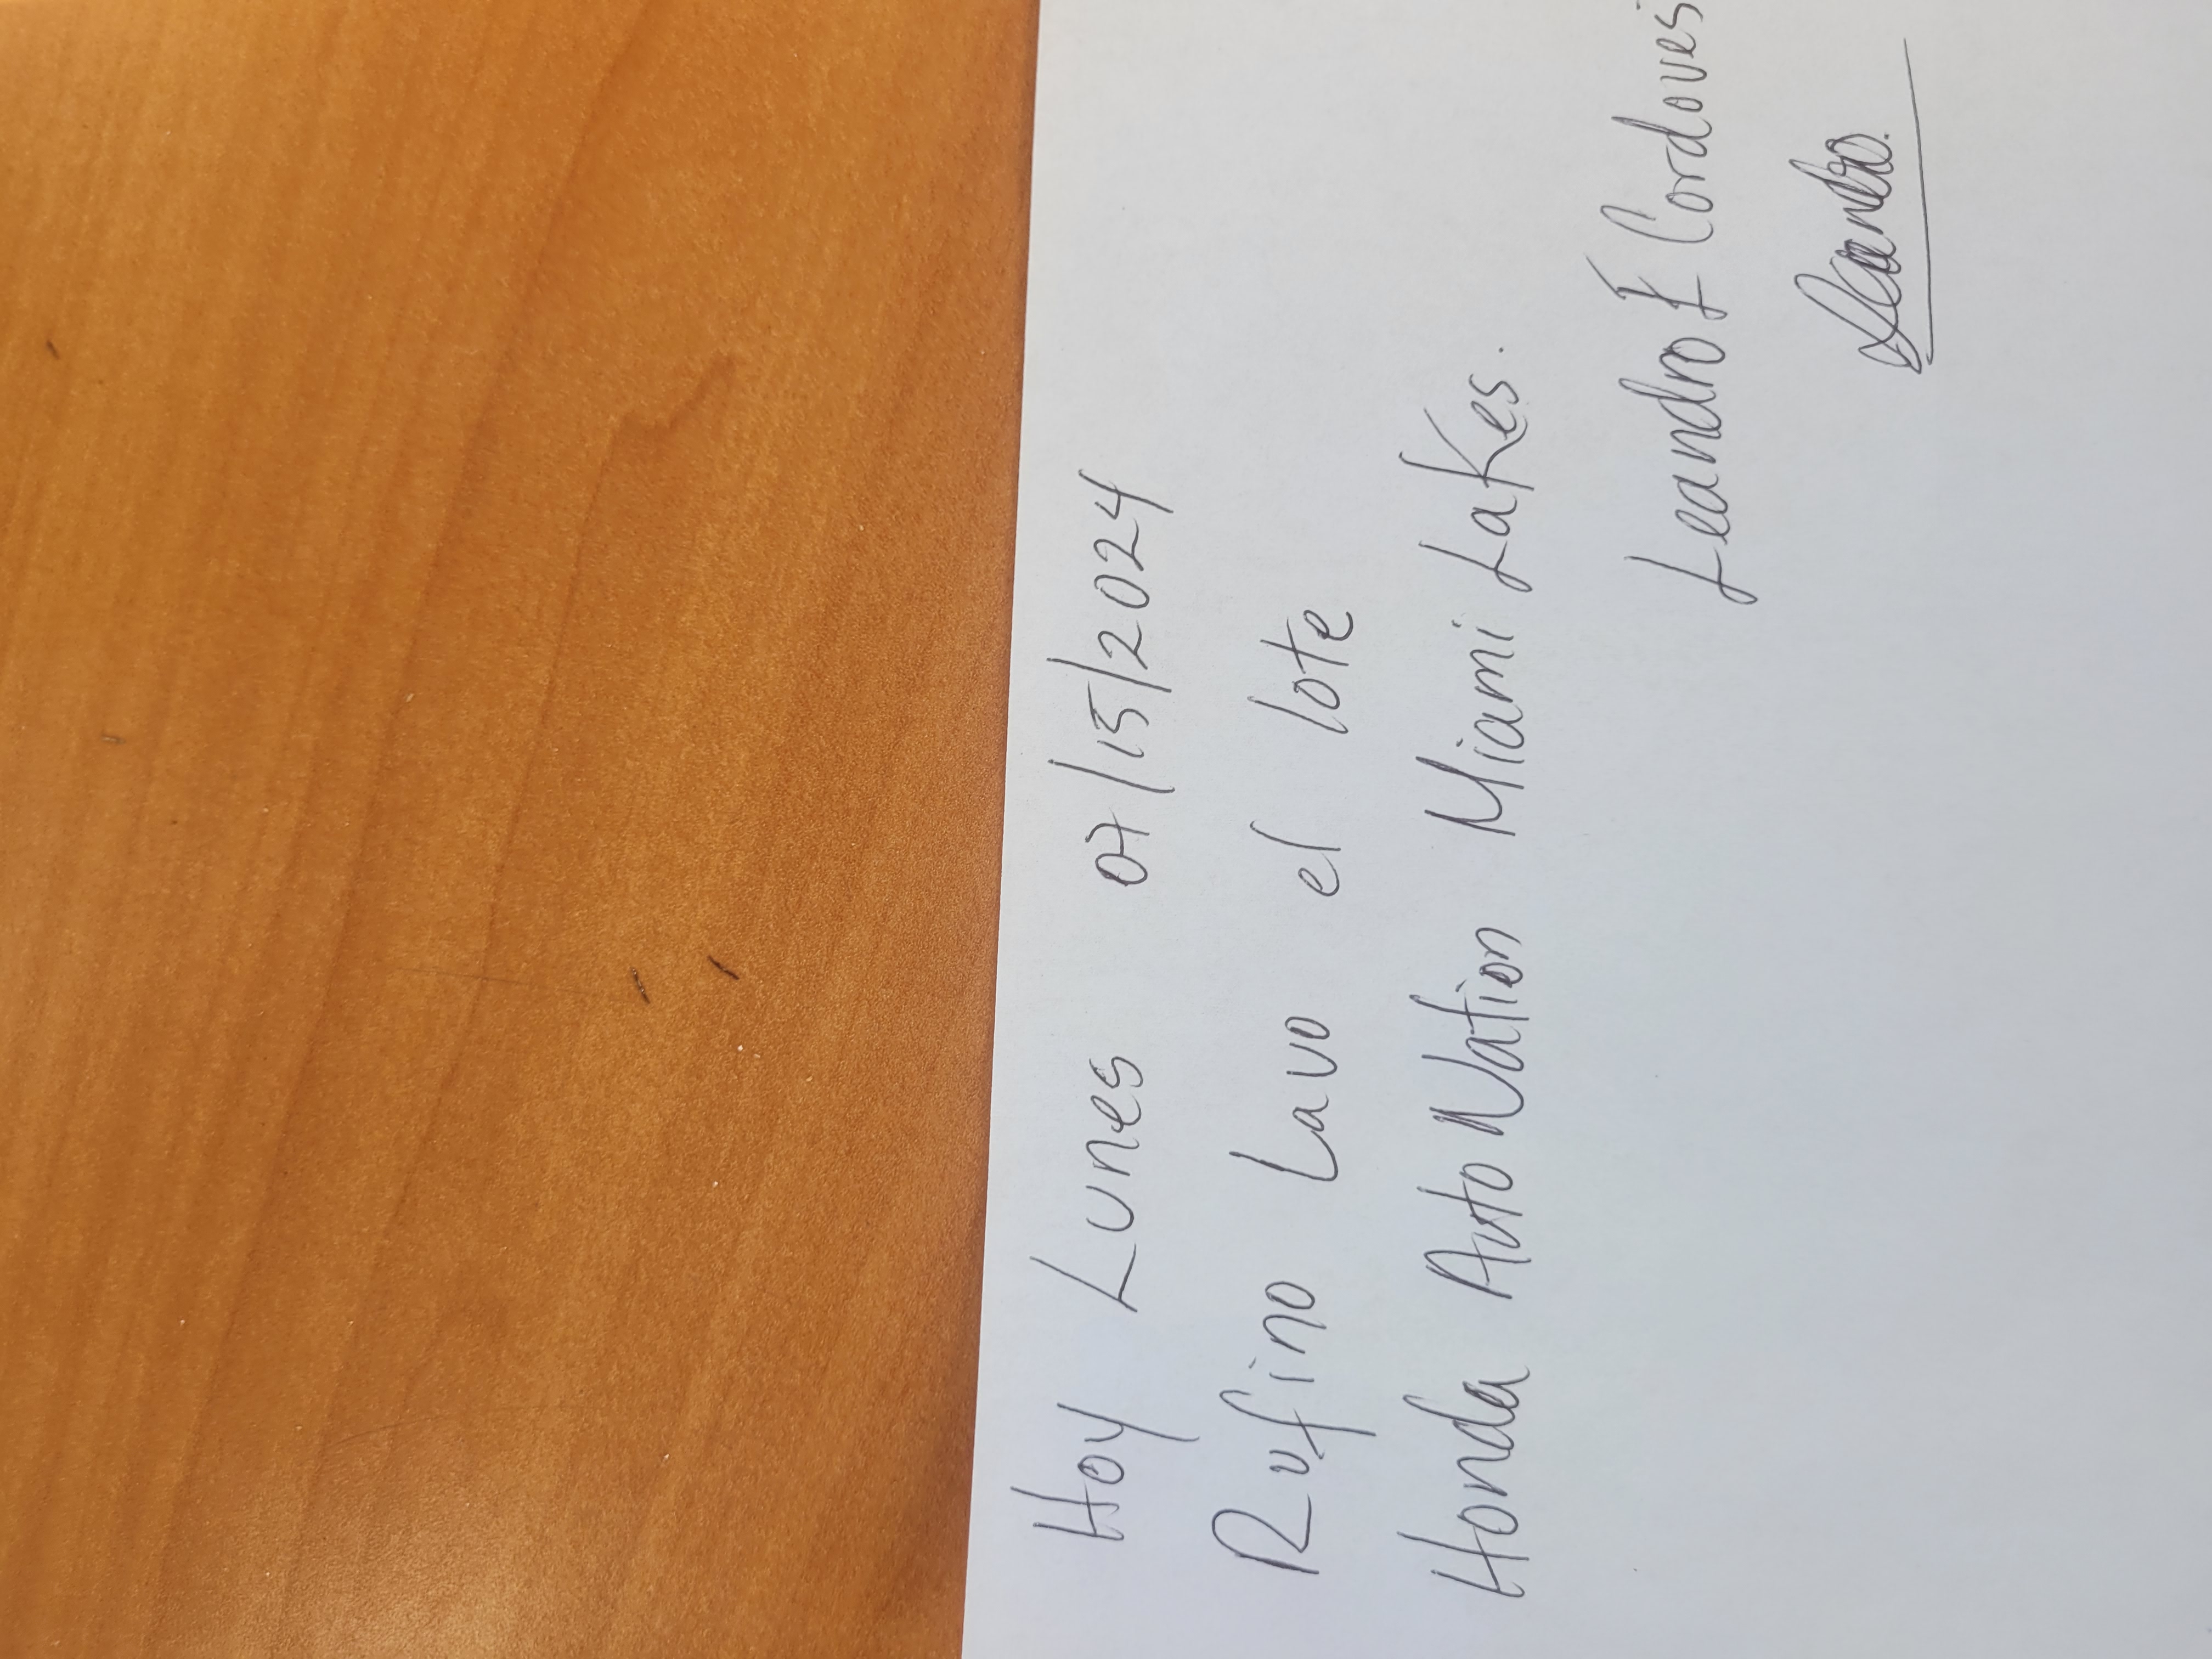 Hoy Lunes 07/15/2024
Rufino Lavo el lote
Honda AutoNation Miami Lakes.
Leandro F Cordoves
Leandro.